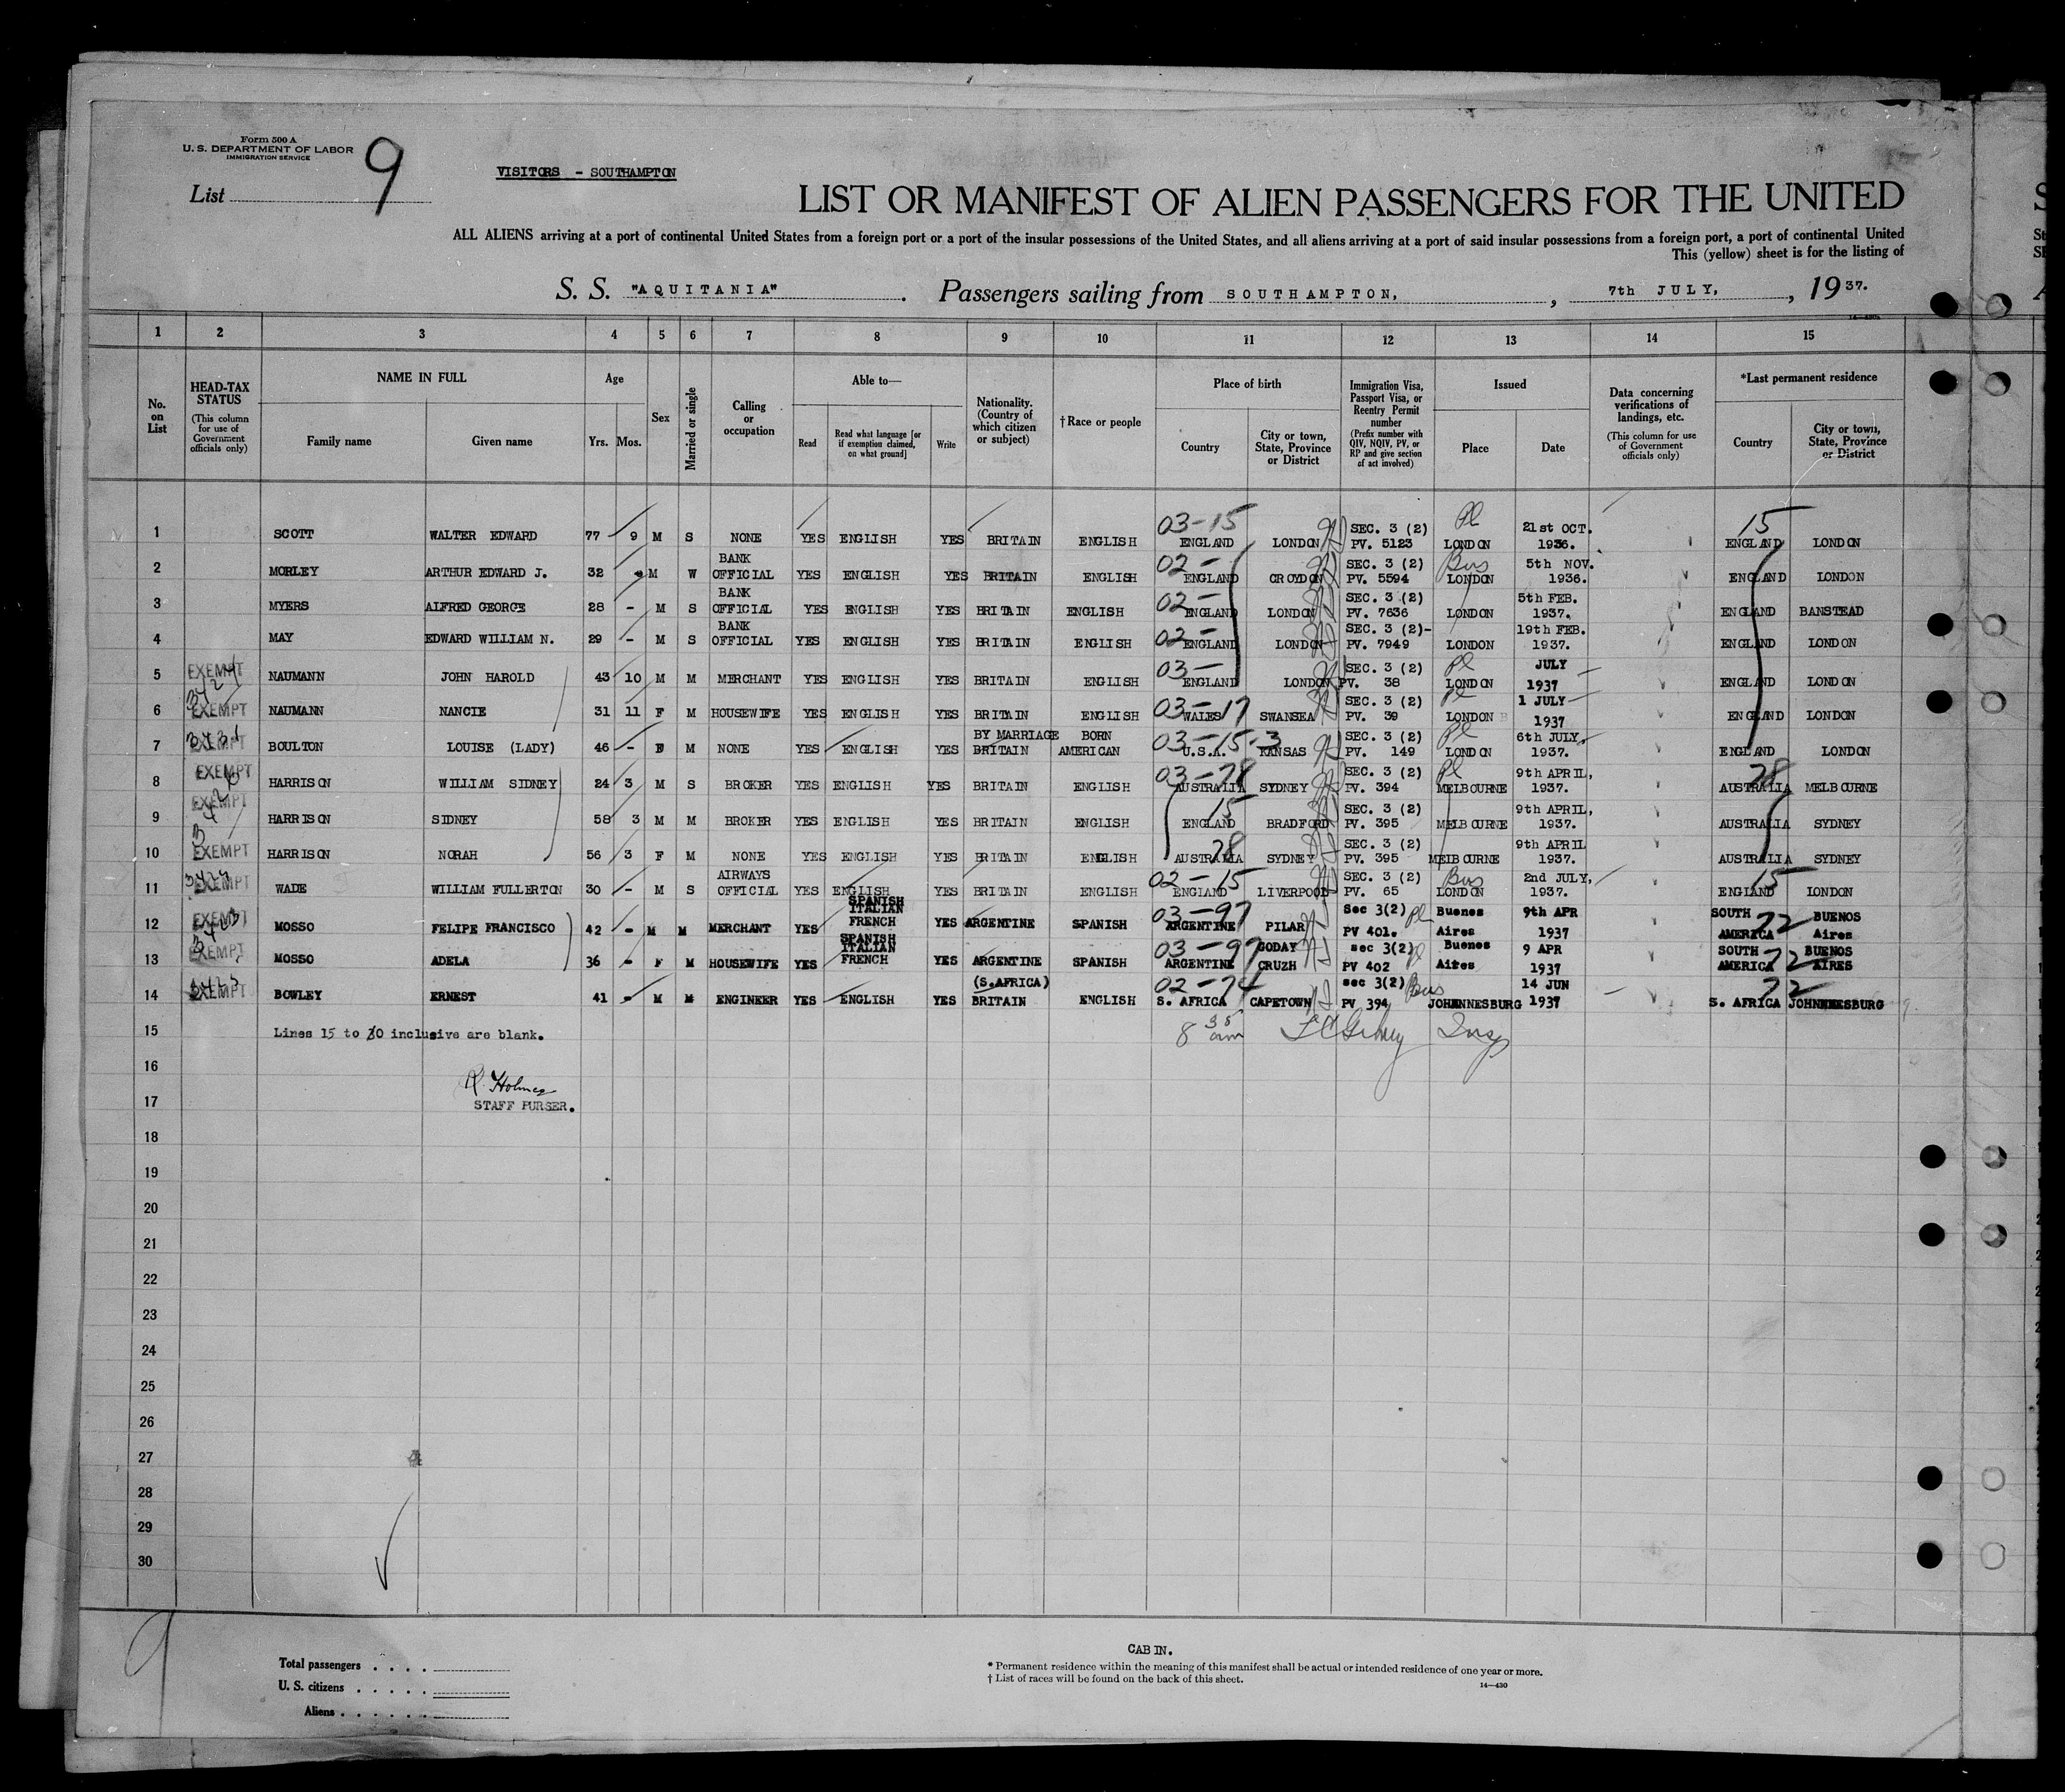 Form 500 A
U. S. DEPARTMENT OF LABOR
IMMIGRATION SERVICE
List 9
VISITORS - SOUTHAMPTON
LIST OR MANIFEST OF ALIEN PASSENGERS FOR THE UNITED
ALL ALIENS arriving at a port of continental United States from a foreign port or a port of the insular possessions of the United States, and all aliens arriving at a port of said insular possessions from a foreign port, a port of continental United
This (yellow) sheet is for the listing of
S. S. "AQUITANIA". Passengers sailing from SOUTHAMPTON, , 7th JULY, , 1937.
1 2 3 4 5 6 7 8 9 10 11 12 13 14 15
No. on List
HEAD-TAX STATUS (This column for use of Government officials only)
NAME IN FULL Family name Given name
Age Yrs. Mos.
Sex
Married or single
Calling or occupation
Able to— Read Read what language [or if exemption claimed, on what ground] Write
Nationality. (Country of which citizen or subject)
† Race or people
Place of birth Country City or town, State, Province or District
Immigration Visa, Passport Visa, or Reentry Permit number (Prefix number with QIV, NQIV, PV, or RP and give section of act involved)
Issued Place Date
Data concerning verifications of landings, etc. (This column for use of Government officials only)
*Last permanent residence Country City or town, State, Province or District
1 SCOTT WALTER EDWARD 77 9 M S NONE YES ENGLISH YES BRITAIN ENGLISH 03-15 ENGLAND LONDON SEC. 3 (2) PV. 5123 Pl LONDON 21st OCT. 1936. 15 ENGLAND LONDON
2 MORLEY ARTHUR EDWARD J. 32 M W BANK OFFICIAL YES ENGLISH YES BRITAIN ENGLISH 02- ENGLAND CROYDON SEC. 3 (2) PV. 5594 Bus LONDON 5th NOV. 1936. ENGLAND LONDON
3 MYERS ALFRED GEORGE 28 - M S BANK OFFICIAL YES ENGLISH YES BRITAIN ENGLISH 02- ENGLAND LONDON SEC. 3 (2) PV. 7636 LONDON 5th FEB. 1937. ENGLAND BANSTEAD
4 MAY EDWARD WILLIAM N. 29 - M S BANK OFFICIAL YES ENGLISH YES BRITAIN ENGLISH 02- ENGLAND LONDON SEC. 3 (2)- PV. 7949 LONDON 19th FEB. 1937. ENGLAND LONDON
5 EXEMPT NAUMANN JOHN HAROLD 43 10 M M MERCHANT YES ENGLISH YES BRITAIN ENGLISH 03- ENGLAND LONDON SEC. 3 (2) PV. 38 Pl LONDON JULY 1937 ENGLAND LONDON
6 EXEMPT NAUMANN NANCIE 31 11 F M HOUSEWIFE YES ENGLISH YES BRITAIN ENGLISH 03-17 WALES SWANSEA SEC. 3 (2) PV. 39 Pl LONDON 1 JULY 1937 ENGLAND LONDON
7 EXEMPT BOULTON LOUISE (LADY) 46 - F M NONE YES ENGLISH YES BY MARRIAGE BRITAIN BORN AMERICAN 03-15-3 U.S.A. KANSAS SEC. 3 (2) PV. 149 Pl LONDON 6th JULY, 1937. ENGLAND LONDON
8 EXEMPT HARRISON WILLIAM SIDNEY 24 3 M S BROKER YES ENGLISH YES BRITAIN ENGLISH 03-78 AUSTRALIA SYDNEY SEC. 3 (2) PV. 394 Pl MELBOURNE 9th APRIL, 1937. 78 AUSTRALIA MELBOURNE
9 EXEMPT HARRISON SIDNEY 58 3 M M BROKER YES ENGLISH YES BRITAIN ENGLISH 15 ENGLAND BRADFORD SEC. 3 (2) PV. 395 MELBOURNE 9th APRIL, 1937. AUSTRALIA SYDNEY
10 EXEMPT HARRISON NORAH 56 3 F M NONE YES ENGLISH YES BRITAIN ENGLISH 78 AUSTRALIA SYDNEY SEC. 3 (2) PV. 395 MELBOURNE 9th APRIL 1937. AUSTRALIA SYDNEY
11 EXEMPT WADE WILLIAM FULLERTON 30 - M S AIRWAYS OFFICIAL YES ENGLISH YES BRITAIN ENGLISH 02-15 ENGLAND LIVERPOOL SEC. 3 (2) PV. 65 Bus LONDON 2nd JULY, 1937. 15 ENGLAND LONDON
12 EXEMPT MOSSO FELIPE FRANCISCO 42 - M M MERCHANT YES SPANISH ITALIAN FRENCH YES ARGENTINE SPANISH 03-97 ARGENTINE PILAR Sec 3(2) PV 401. Pl Buenos Aires 9th APR 1937 SOUTH AMERICA 72 BUENOS Aires
13 EXEMPT MOSSO ADELA 36 - F M HOUSEWIFE YES SPANISH ITALIAN FRENCH YES ARGENTINE SPANISH 03-97 ARGENTINE GODAY CRUZH sec 3(2) PV 402 Pl Buenos Aires 9 APR 1937 SOUTH AMERICA 72 BUENOS AIRES
14 EXEMPT BOWLEY ERNEST 41 - M M ENGINEER YES ENGLISH YES (S.AFRICA) BRITAIN ENGLISH 02-74 S. AFRICA CAPETOWN sec 3(2) PV 394 Bus JOHANNESBURG 14 JUN 1937 72 S. AFRICA JOHNNNESBURG
15 Lines 15 to 30 inclusive are blank. 8 35 am Insp
16
R. Holmes
17 STAFF PURSER.
18
19
20
21
22
23
24
25
26
27
28
29
30
Total passengers . . . .
U. S. citizens . . . . .
Aliens . . . . . .
CABIN.
* Permanent residence within the meaning of this manifest shall be actual or intended residence of one year or more.
† List of races will be found on the back of this sheet.
14—430